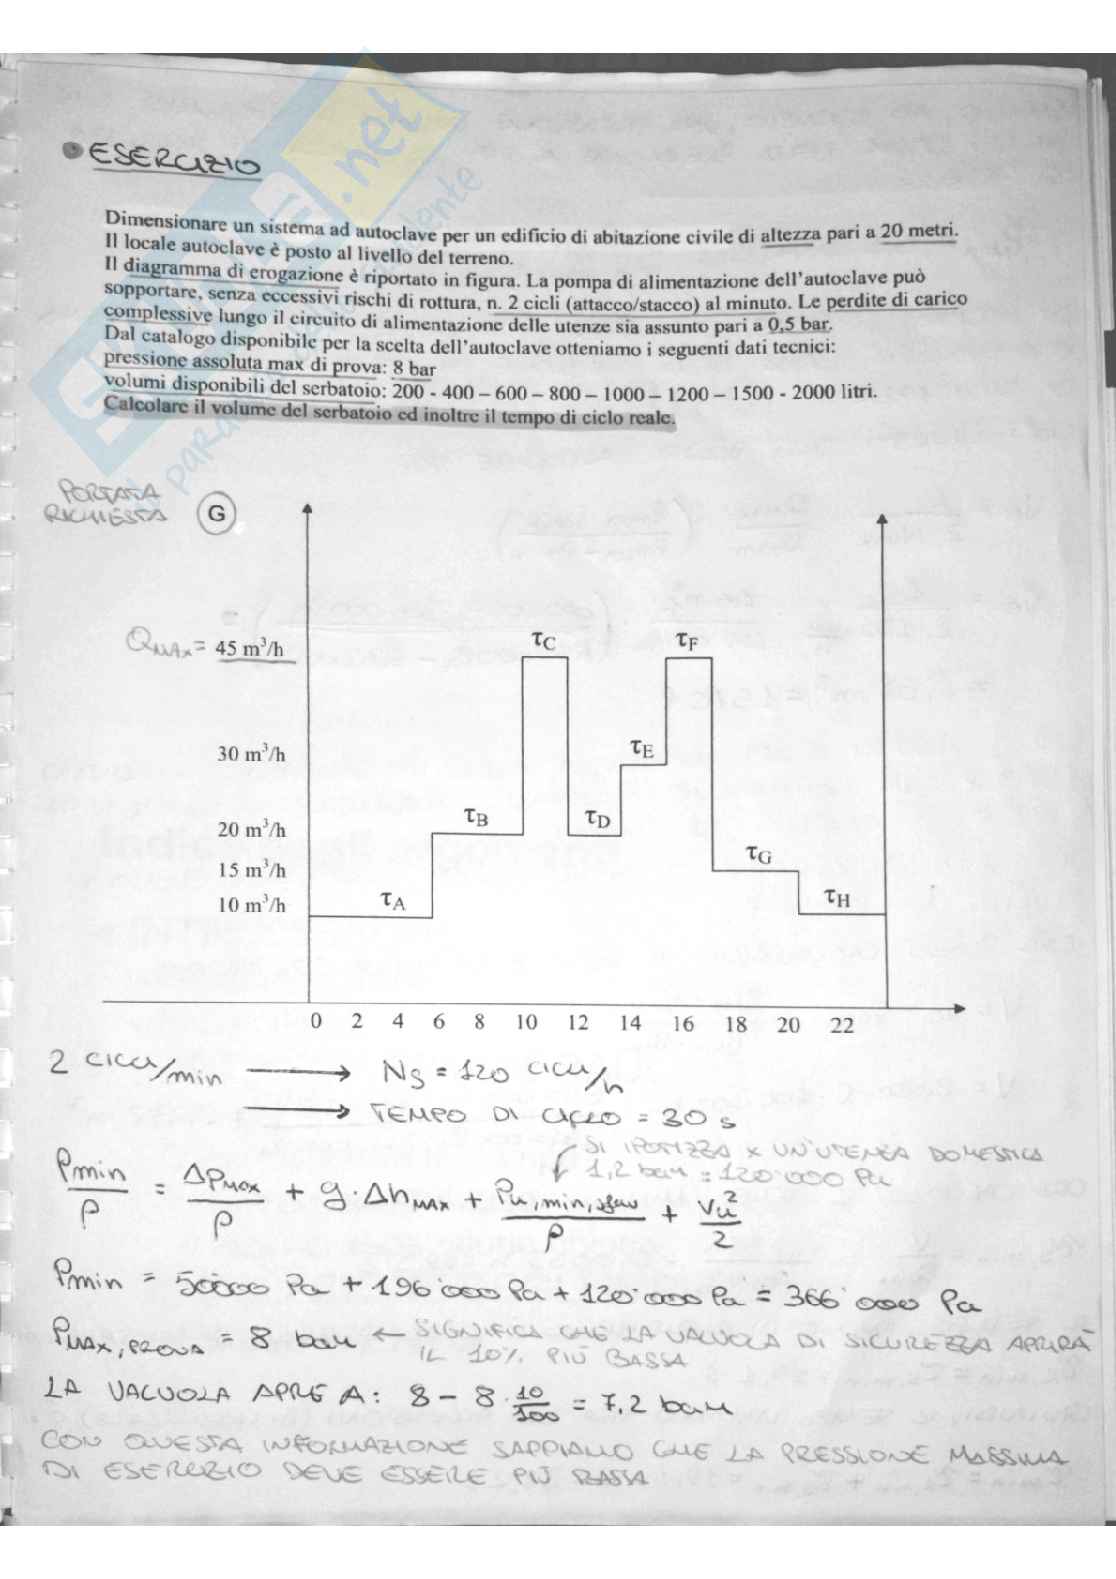 • ESERCIZIO
Dimensionare un sistema ad autoclave per un edificio di abitazione civile di altezza pari a 20 metri.
Il locale autoclave è posto al livello del terreno.
Il diagramma di erogazione è riportato in figura. La pompa di alimentazione dell'autoclave può
sopportare, senza eccessivi rischi di rottura, n. 2 cicli (attacco/stacco) al minuto. Le perdite di carico
complessive lungo il circuito di alimentazione delle utenze sia assunto pari a 0,5 bar.
Dal catalogo disponibile per la scelta dell'autoclave otteniamo i seguenti dati tecnici:
pressione assoluta max di prova: 8 bar
volumi disponibili del serbatoio: 200 - 400 – 600 – 800 – 1000 – 1200 – 1500 - 2000 litri.
Calcolare il volume del serbatoio ed inoltre il tempo di ciclo reale.
PORTATA
RICHIESTA G
τC τF
QMAX = 45 m³/h
τE
30 m³/h
τB τD
20 m³/h
τG
15 m³/h
τA τH
10 m³/h
0 2 4 6 8 10 12 14 16 18 20 22
2 CICLI/min → NS = 120 CICLI/h
→ TEMPO DI CICLO = 30 s
SI IPOTIZZA x UN'UTENZA DOMESTICA
1,2 bar = 120'000 Pa
Pmin/ρ = ΔPMAX/ρ + g·ΔhMAX + Pu,min,sfav/ρ + Vu²/2
Pmin = 50000 Pa + 196'000 Pa + 120'000 Pa = 366'000 Pa
PMAX,PROVA = 8 bar ← SIGNIFICA CHE LA VALVOLA DI SICUREZZA APRIRÀ
IL 10% PIÙ BASSA
LA VALVOLA APRE A: 8 – 8·10/100 = 7,2 bar
CON QUESTA INFORMAZIONE SAPPIAMO CHE LA PRESSIONE MASSIMA
DI ESERCIZIO DEVE ESSERE PIÙ BASSA